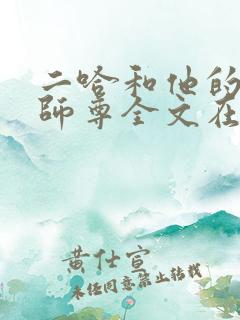 二哈和他的
師尊全文在
黄仕宣
未经同意禁止转载